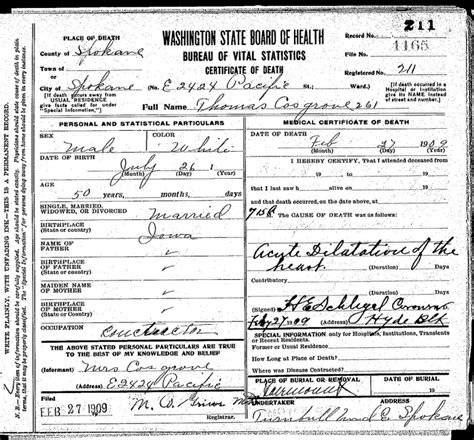 211
WASHINGTON STATE BOARD OF HEALTH
BUREAU OF VITAL STATISTICS
CERTIFICATE OF DEATH
PLACE OF DEATH
County of Spokane
Town of
City of Spokane No. E 2424 Pacific St. Ward)
Record No.
File No. 1165
Registered No. 211
(If death occurs away from USUAL RESIDENCE give facts called for under "Special Information.")
(If death occurred in a Hospital or Institution give its NAME instead of street and number.)
Full Name Thomas Cosgrove 261
PERSONAL AND STATISTICAL PARTICULARS
SEX COLOR
Male White
DATE OF BIRTH
July 26 1
AGE
50 years, months, days
SINGLE, MARRIED, WIDOWED, OR DIVORCED
Married
BIRTHPLACE
(State or country)
Iowa
NAME OF FATHER
BIRTHPLACE OF FATHER
(State or country)
MAIDEN NAME OF MOTHER
BIRTHPLACE OF MOTHER
(State or country)
OCCUPATION
Contractor
THE ABOVE STATED PERSONAL PARTICULARS ARE TRUE TO THE BEST OF MY KNOWLEDGE AND BELIEF
(Informant) Mrs Cosgrove
E 2424 Pacific
FEB 27 1909
MEDICAL CERTIFICATE OF DEATH
DATE OF DEATH
Feb 27 1909
I HEREBY CERTIFY, That I attended deceased from
that I last saw h alive on
and that death occurred, on the date stated above, at
M. The CAUSE OF DEATH was as follows:
Acute Dilatation of the
heart
(Duration) Days
Contributory
(Duration) Days
(Signed) H E Schlegel Coroner
Feb 27 1909 Hyde Blk
SPECIAL INFORMATION only for Hospitals, Institutions, Transients or Recent Residents.
Former or Usual Residence
How Long at Place of Death?
Where was Disease Contracted
PLACE OF BURIAL OR REMOVAL
Fairmount
Turnbull Und Co Spokane
WRITE PLAINLY, WITH UNFADING INK—THIS IS A PERMANENT RECORD.